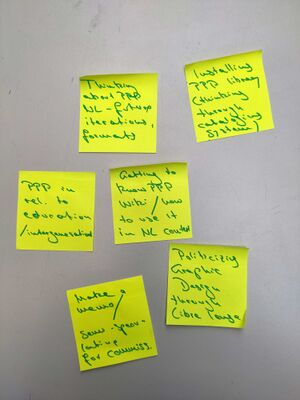 Thinking
about PPP
NL - future
iterations,
formats
Installing
PPP library
(thinking
through
cataloging
system)
PPP in
rel. to
education
/intergenerational
Getting to
know PPP
Wiki / how
to use it
in NL context
Politicizing
Graphic
Design
through
Libre
Make a
memo/
for commiss.